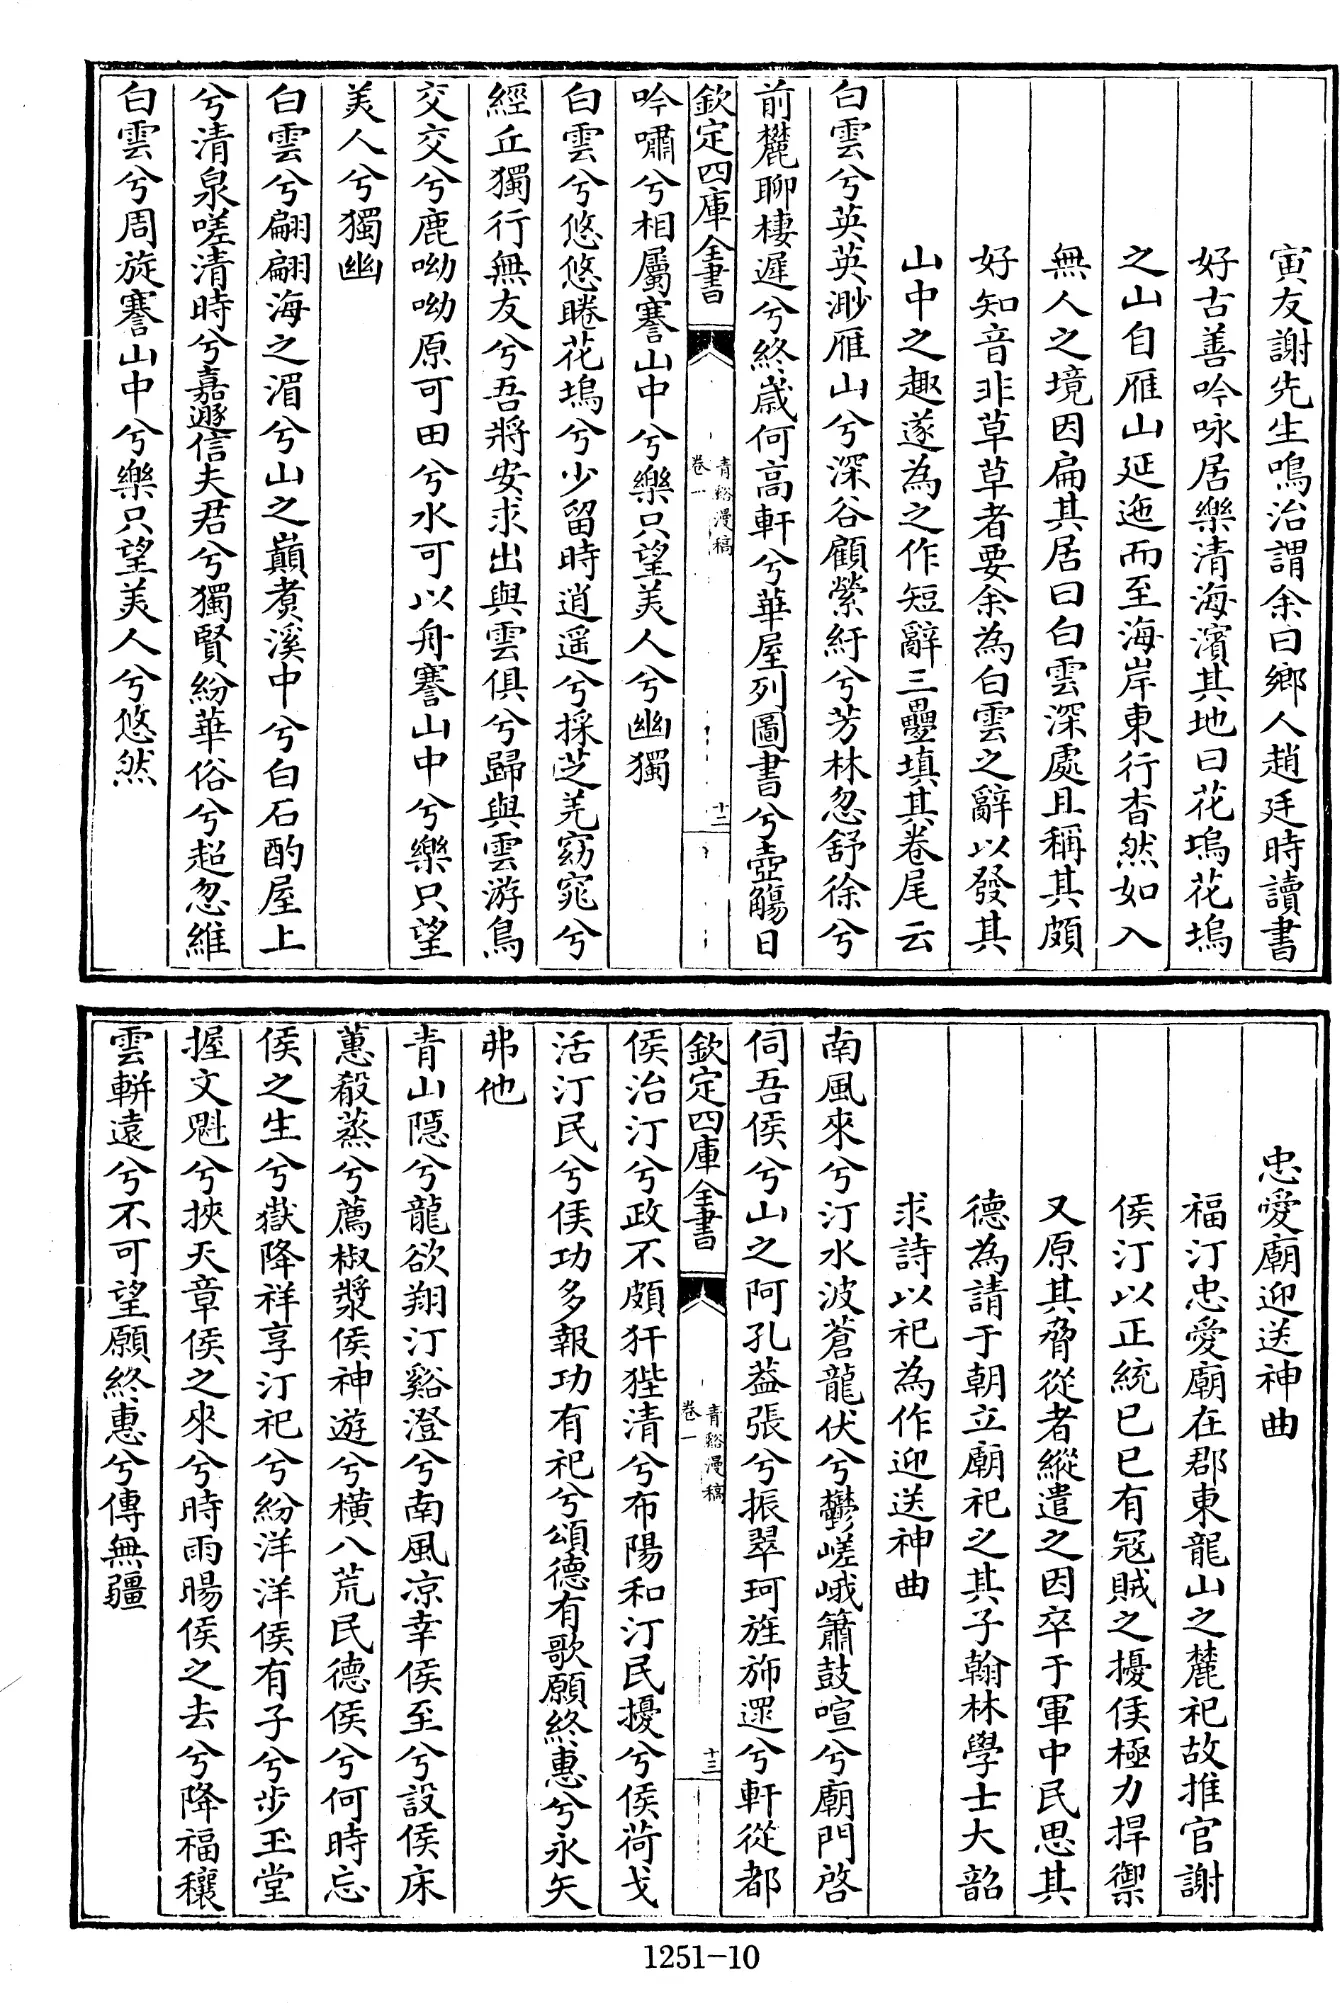 寅友謝先生鳴治謂余曰鄉人趙廷時讀書
好古善吟咏居樂清海濱其地曰花塢花塢
之山自雁山延迤而至海岸東行杳然如入
無人之境因扁其居曰白雲深處且稱其頗
好知音非草草者要余為白雲之辭以發其
山中之趣遂為之作短辭三疊填其卷尾云
白雲兮英英渺雁山兮深谷顧縈紆兮芳林忽舒徐兮
前麓聊棲遲兮終歲何高軒兮華屋列圖書兮壺觴日
欽定四庫全書
青谿漫稿
卷一
十二
吟嘯兮相屬謇山中兮樂只望美人兮幽獨
白雲兮悠悠睠花塢兮少留時逍遥兮採芝羌窈窕兮
經丘獨行無友兮吾將安求出與雲俱兮歸與雲游鳥
交交兮鹿呦呦原可田兮水可以舟謇山中兮樂只望
美人兮獨幽
白雲兮翩翩海之湄兮山之巔煮溪中兮白石酌屋上
兮清泉嗟清時兮嘉遯信夫君兮獨賢紛華俗兮超忽維
白雲兮周旋謇山中兮樂只望美人兮悠然
忠愛廟迎送神曲
福汀忠愛廟在郡東龍山之麓祀故推官謝
侯汀以正統已已有冦賊之擾侯極力捍禦
又原其脅從者縱遣之因卒于軍中民思其
德為請于朝立廟祀之其子翰林學士大韶
求詩以祀為作迎送神曲
南風來兮汀水波蒼龍伏兮鬱嵯峨簫鼓喧兮廟門啓
伺吾侯兮山之阿孔葢張兮振翠珂旌斾還兮軒從都
欽定四庫全書
青谿漫稿
卷一
十三
侯治汀兮政不頗犴狴清兮布陽和汀民擾兮侯荷戈
活汀民兮侯功多報功有祀兮頌德有歌願終惠兮永矢
弗他
青山隱兮龍欲翔汀谿澄兮南風凉幸侯至兮設侯床
蕙殽蒸兮薦椒漿侯神遊兮橫八荒民德侯兮何時忘
侯之生兮嶽降祥享汀祀兮紛洋洋侯有子兮步玉堂
握文魁兮挾天章侯之來兮時雨暘侯之去兮降福穰
雲輧遠兮不可望願終惠兮傳無疆
1251-10